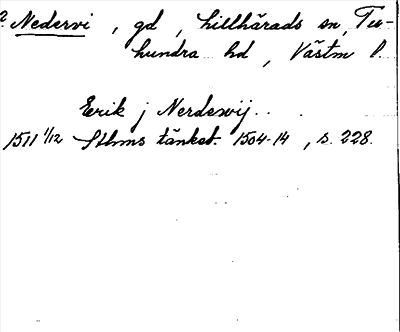 ? Nedervi , gd , Lillhärads sn, Tu-
hundra hd , Västm l.
Erik j Nerdewij..
1511 1/12 Sthms tänkeb. 1504-14 , s. 228.